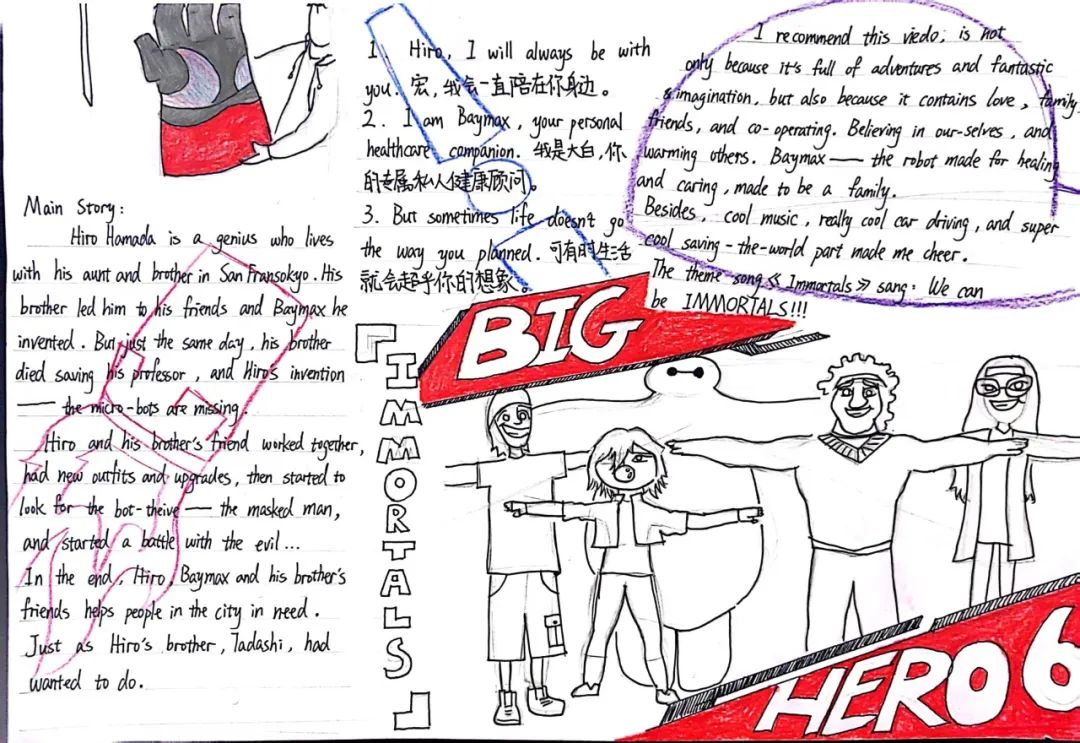 1. Hiro, I will always be with
you. 宏,我会一直陪在你身边。
2. I am Baymax, your personal
healthcare companion. 我是大白,你
的专属私人健康顾问。
3. But sometimes life doesn't go
the way you planned. 可有时生活
就会超乎你的想象。
I recommend this viedo, is not
only because it's full of adventures and fantastic
imagination, but also because it contains love, family,
friends, and co-operating. Believing in our-selves, and
warming others. Baymax — the robot made for healing
and caring, made to be a family.
Besides, cool music, really cool car driving, and super
cool saving-the-world part made me cheer.
The theme song《Immortals》sang: We can
be IMMORTALS!!!
Main Story:
Hiro Hamada is a genius who lives
with his aunt and brother in San Fransokyo. His
brother led him to his friends and Baymax he
invented. But just the same day, his brother
died saving his professor, and Hiro's invention
— the micro-bots are missing.
Hiro and his brother's friend worked together,
had new outfits and upgrades, then started to
look for the bot-theive — the masked man,
and started a battle with the evil...
In the end, Hiro, Baymax and his brother's
friends helps people in the city in need.
Just as Hiro's brother, Tadashi, had
wanted to do.
『IMMORTALS』
BIG
HERO 6